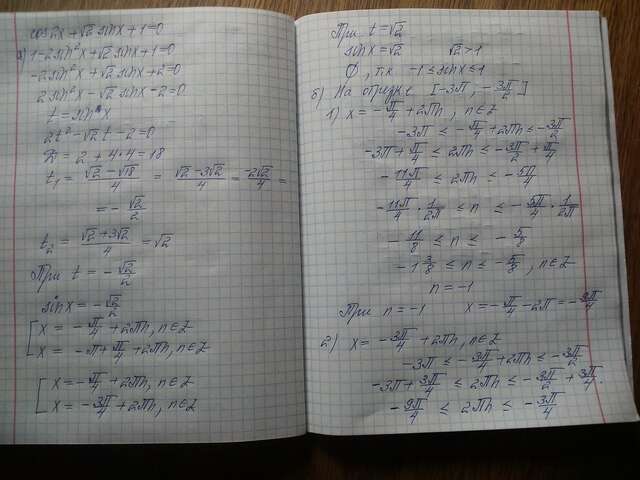 cos2x + √2 sinx + 1 = 0
а) 1 - 2sin²x + √2 sinx + 1 = 0
-2sin²x + √2 sinx + 2 = 0
2sin²x - √2 sinx - 2 = 0
t = sin x
2t² - √2 t - 2 = 0
D = 2 + 4·4 = 18
t₁ = (√2 - √18)/4 = (√2 - 3√2)/4 = -2√2/4 =
= -√2/2
t₂ = (√2 + 3√2)/4 = √2
При t = -√2/2
sinx = -√2/2
[ x = -π/4 + 2πn, n∈Z
x = -π + π/4 + 2πn, n∈Z
[ x = -π/4 + 2πn, n∈Z
x = -3π/4 + 2πn, n∈Z
При t = √2
sinx = √2 √2 > 1
∅, т.к -1 ≤ sinx ≤ 1
б) На отрезке [-3π, -3π/2]
1) x = -π/4 + 2πn, n∈Z
-3π ≤ -π/4 + 2πn ≤ -3π/2
-3π + π/4 ≤ 2πn ≤ -3π/2 + π/4
-11π/4 ≤ 2πn ≤ -5π/4
-11π/4 · 1/2π ≤ n ≤ -5π/4 · 1/2π
-11/8 ≤ n ≤ -5/8
-1 3/8 ≤ n ≤ -5/8, n∈Z
n = -1
При n = -1 x = -π/4 - 2π = -9π/4
2) x = -3π/4 + 2πn, n∈Z
-3π ≤ -3π/4 + 2πn ≤ -3π/2
-3π + 3π/4 ≤ 2πn ≤ -3π/2 + 3π/4.
-9π/4 ≤ 2πn ≤ -3π/4